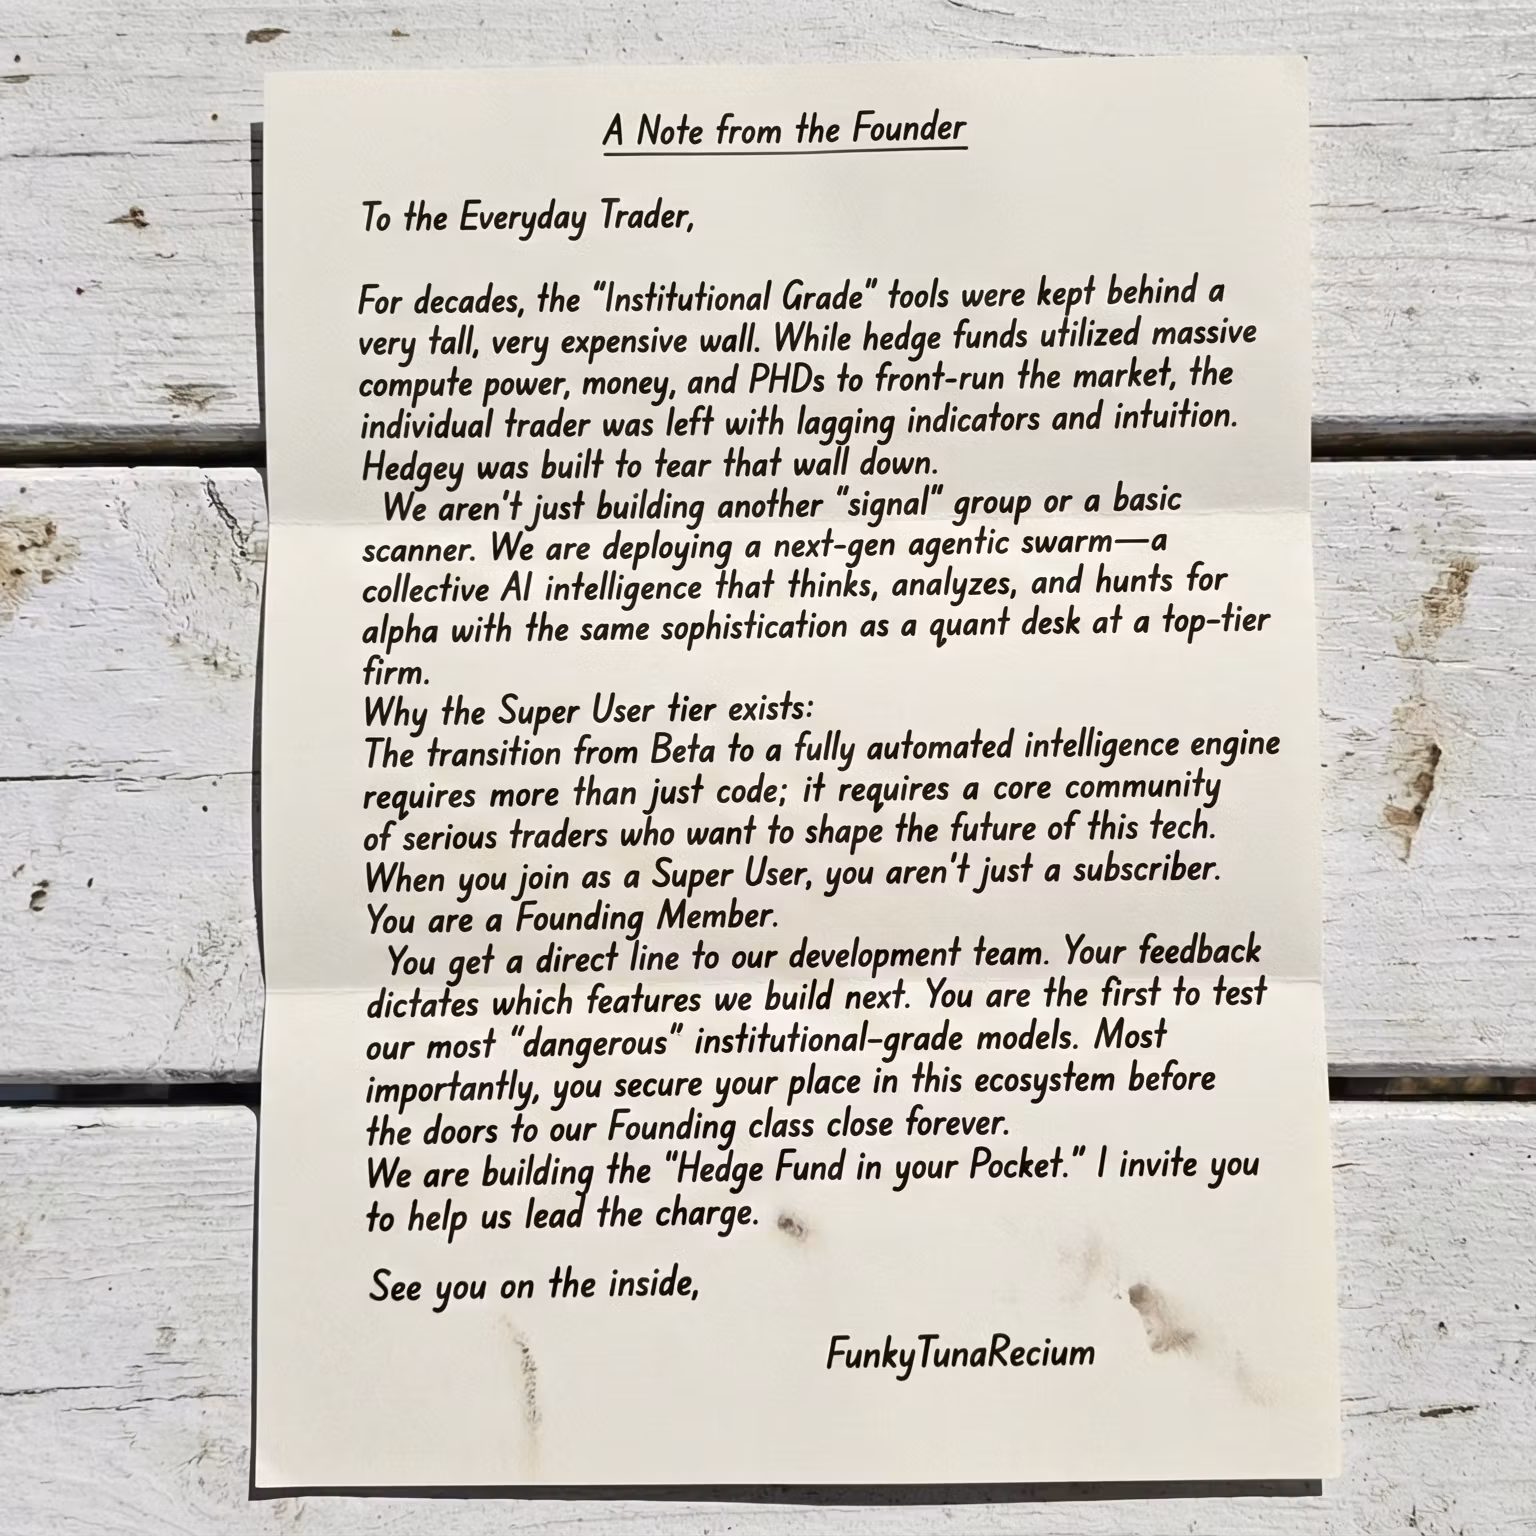 A Note from the Founder
To the Everyday Trader,
For decades, the “Institutional Grade” tools were kept behind a
very tall, very expensive wall. While hedge funds utilized massive
compute power, money, and PHDs to front-run the market, the
individual trader was left with lagging indicators and intuition.
Hedgey was built to tear that wall down.
We aren't just building another "signal" group or a basic
scanner. We are deploying a next-gen agentic swarm—a
collective AI intelligence that thinks, analyzes, and hunts for
alpha with the same sophistication as a quant desk at a top-tier
firm.
Why the Super User tier exists:
The transition from Beta to a fully automated intelligence engine
requires more than just code; it requires a core community
of serious traders who want to shape the future of this tech.
When you join as a Super User, you aren't just a subscriber.
You are a Founding Member.
You get a direct line to our development team. Your feedback
dictates which features we build next. You are the first to test
our most “dangerous” institutional-grade models. Most
importantly, you secure your place in this ecosystem before
the doors to our Founding class close forever.
We are building the “Hedge Fund in your Pocket.” I invite you
to help us lead the charge.
See you on the inside,
FunkyTunaRecium